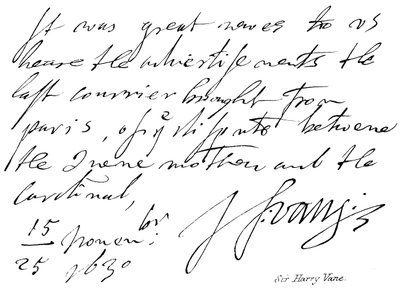 It was great newes to us
heare the advertisements the
last courrier brought from
paris, of yᵉ dispute betweene
the Quene mother and the
Cardinal,
15 Novembʳ:
25 1630
Sir Harry Vane.